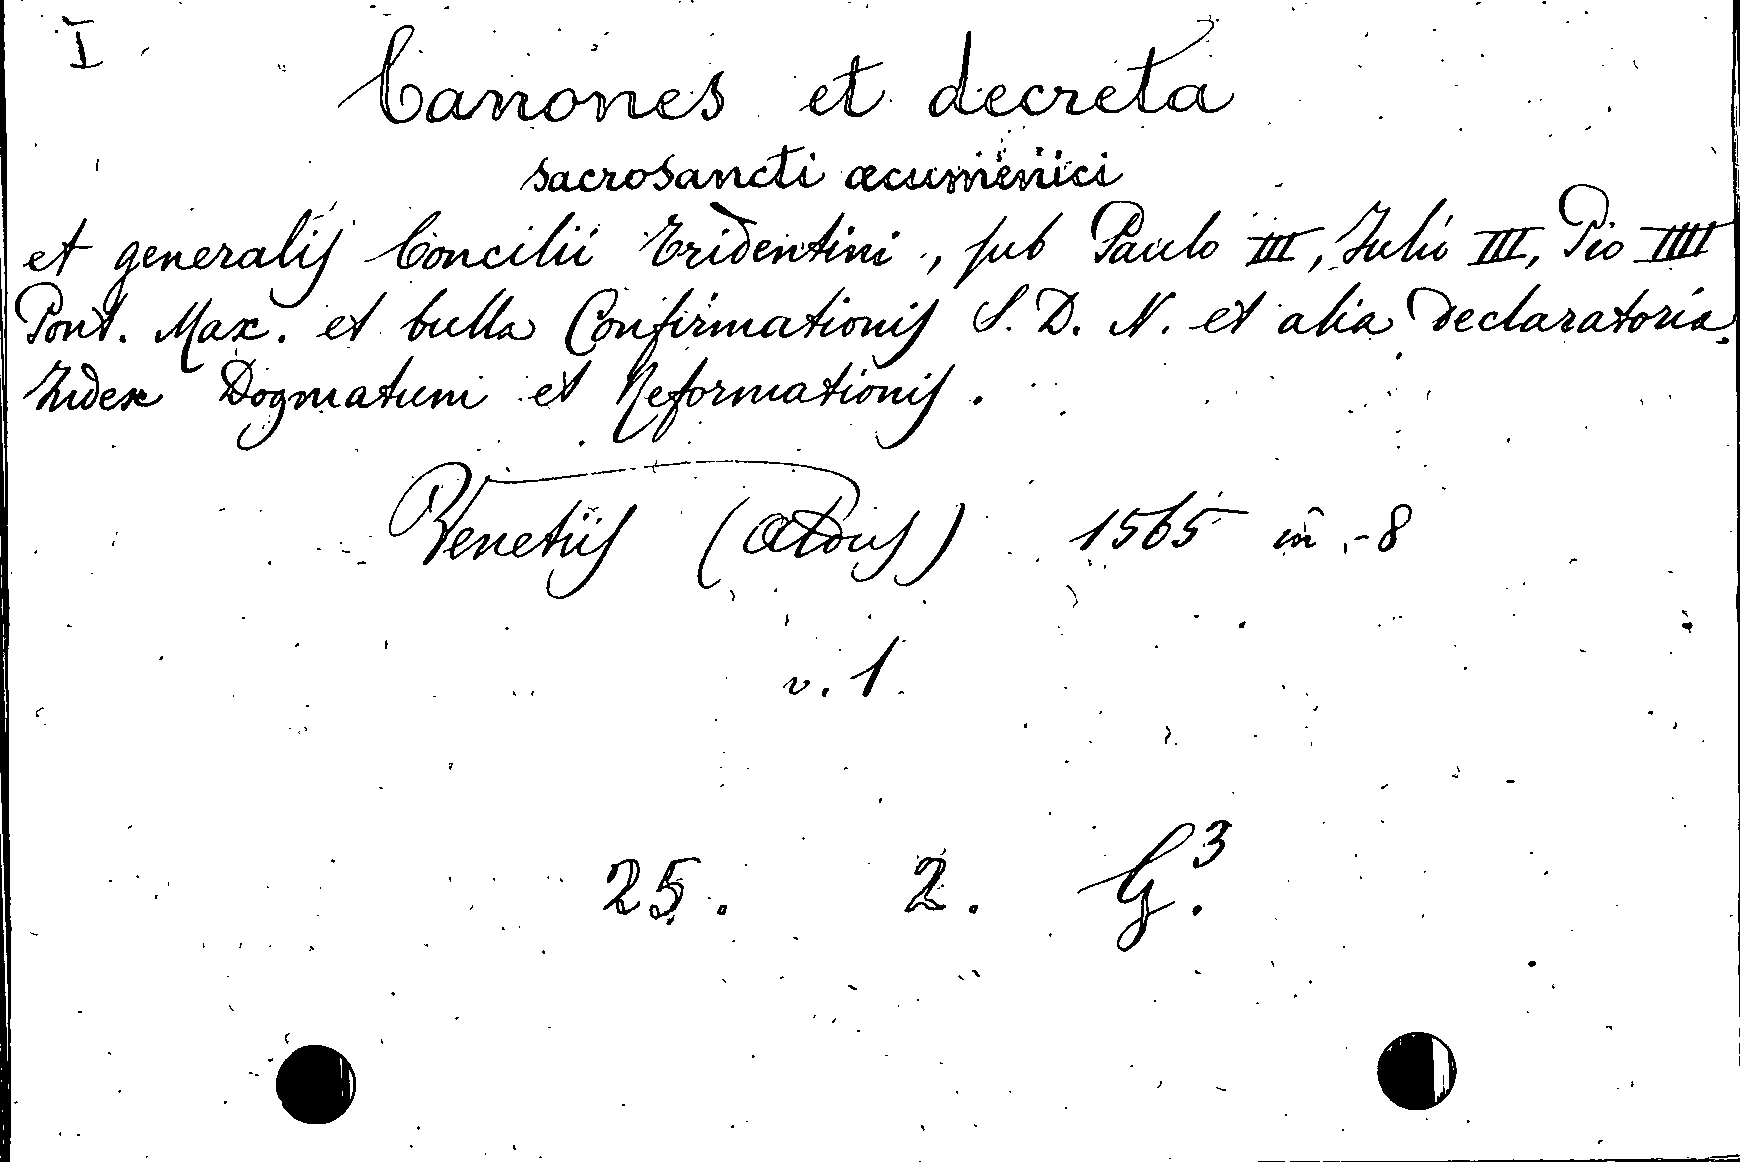 I
Canones et decreta
sacrosancti œcumenici
et generalis Concilii Tridentini, sub Paulo III, Julio III, Pio IIII
Pont. Max. et bulla Confirmationis S. D. N. et alia declaratoria.
Index Dogmatum et Reformationis.
Venetiis (Aldus) 1565 in-8
v. 1.
25. 2. G.³